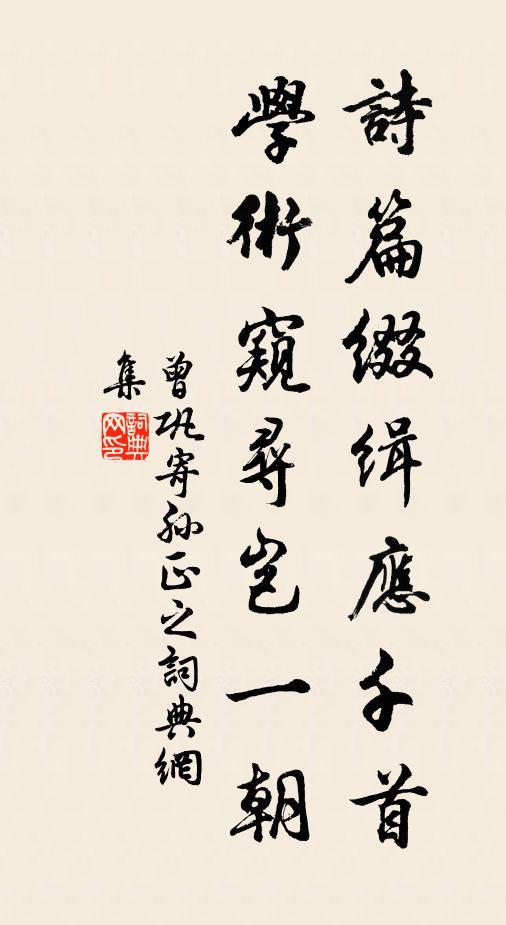 詩篇綴緝應千首
學術窺尋豈一朝
曾巩寄孙正之詞典網
集
詞典
网印